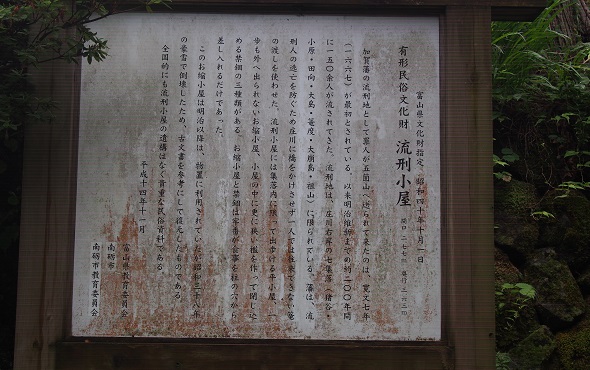 富山県文化財指定 昭和四十年十月一日
有形民俗文化財 流刑小屋 間口 二·七七 奥行
加賀藩の流刑地として罪人が五箇山へ送られて来たのは、寛文七年
(一六六七)が最初とされている。以来明治維新までの約二〇〇年間
に一五〇余人が流されてきた。流刑地は、庄川右岸の七集落(猪谷・
小原・田向・大島・篭度・大崩島・祖山)に限られている。藩は、流
刑人の逃亡を防ぐため庄川に橋をかけさせず一人では往来できない篭
の渡しを使わせた。流刑小屋には集落内に限って出歩ける平小屋、一
歩も外へ出られないお縮小屋、小屋の中に更に狭い檻を作って閉じ込
める禁錮の三種類がある。お縮小屋と禁錮は牢番が食事を柱の穴から
差し入れるだけであった。
このお縮小屋は明治以降は、物置に利用されていたが昭和三十八年
の豪雪で倒壊したため、古文書を参考にして復元したものである。
全国的にも流刑小屋の遺構はなく貴重な民俗資料である。
平成十四年十一月
富山県教育委員会
南砺市教育委員会